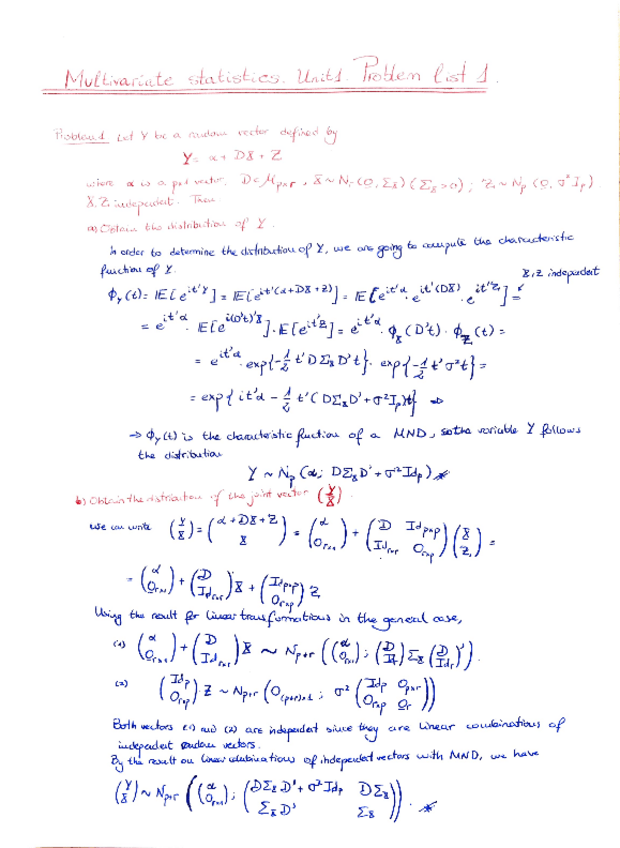 Multivariate statistics. Unit 1. Problem list 1.
Problem 1 Let Y be a random vector defined by
Y = α + DX + Z
where α is a px1 vector, D∈M_{p×r}, X ~ N_r(0, Σ_X) (Σ_X>0); Z ~ N_p(0, σ²I_p)
X, Z independent. Then:
a) Obtain the distribution of Y.
In order to determine the distribution of Y, we are going to compute the characteristic
function of Y.
X, Z independent
ϕ_Y(t) = IE[e^{it'Y}] = IE[e^{it'(α+DX+Z)}] = IE[e^{it'α} · e^{it'(DX)} · e^{it'Z}] =
= e^{it'α} · IE[e^{i(D't)'X}] · IE[e^{it'Z}] = e^{it'α} · ϕ_X(D't) · ϕ_Z(t) =
= e^{it'α} · exp{-1/2 t'DΣ_X D't} · exp{-1/2 t'σ²t} =
= exp{it'α - 1/2 t'(DΣ_X D' + σ²I_p)t} ⇒
⇒ ϕ_Y(t) is the characteristic function of a MND, so the variable Y follows
the distribution
Y ~ N_p(α; DΣ_X D' + σ²Id_p)
b) Obtain the distribution of the joint vector (Y/X).
We can write (Y/X) = (α+DX+Z / X) = (α / 0_{r×1}) + (D Id_{p×p} / Id_{r×r} 0_{r×p}) (X/Z) =
= (α / 0_{r×1}) + (D / Id_{r×r}) X + (Id_{p×p} / 0_{r×p}) Z
Using the result for linear transformations in the general case,
(1) (α / 0_{r×1}) + (D / Id_{r×r}) X ~ N_{p+r}((α / 0_{r×1}); (D / Id_r) Σ_X (D / Id_r)').
(2) (Id_p / 0_{r×p}) Z ~ N_{p+r}(0_{(p+r)×1}; σ² (Id_p 0_{p×r} / 0_{r×p} 0_r))
Both vectors (1) and (2) are independent since they are linear combinations of
independent random vectors.
By the result on linear combinations of independent vectors with MND, we have
(Y/X) ~ N_{p+r}((α / 0_{r×1}); (DΣ_X D' + σ²Id_p DΣ_X / Σ_X D' Σ_X)).